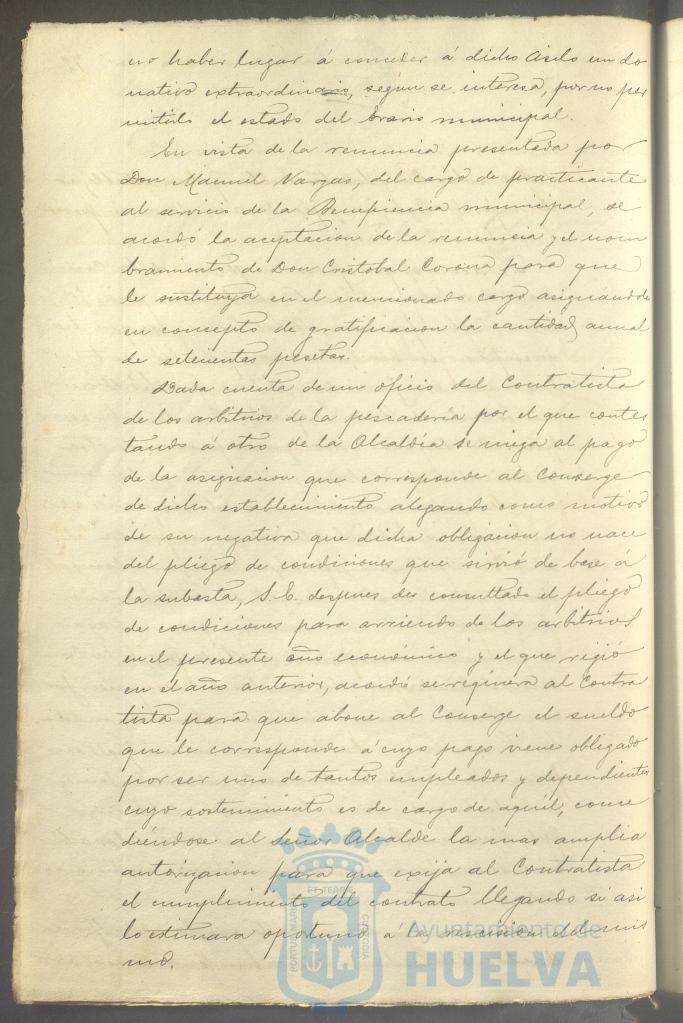 no haber lugar á conceder á dicho Asilo un do
nativo extraordinario, según se interesa, por no per
mitirlo el estado del Erario municipal.
En vista de la renuncia presentada por
Don Manuel Vargas, del cargo de practicante
al servicio de la Beneficencia municipal, se
acordó la aceptacion de la renuncia y el nom
bramiento de Don Cristobal Corona para que
le sustituya en el mencionado cargo asignándole
en concepto de gratificacion la cantidad anual
de setecientas pesetas.
Dada cuenta de un oficio del Contratista
de los arbitrios de la pescadería por el que contes
tando á otro de la Alcaldía se niega al pago
de la asignacion que corresponde al Conserge
de dicho establecimiento alegando como motivo
de su negativa que dicha obligacion no nace
del pliego de condiciones que sirvió de base á
la subasta, S. E. despues de consultado el pliego
de condiciones para arriendo de los arbitrios
en el presente año económico y el que rigió
en el año anterior, acordó se requiera al Contra
tista para que abone al Conserge el sueldo
que le corresponde á cuyo pago viene obligado
por ser uno de tantos empleados y dependientes
cuyo sostenimiento es de cargo de aquél, conce
diéndose al Señor Alcalde la mas amplia
autorizacion para que exija al Contratista
el cumplimiento del contrato llegando si asi
lo estimara oportuno á la rescision del mis
mo.
PORTUS MARIS ET TERRE CUSTODIA
Ayuntamiento de
HUELVA